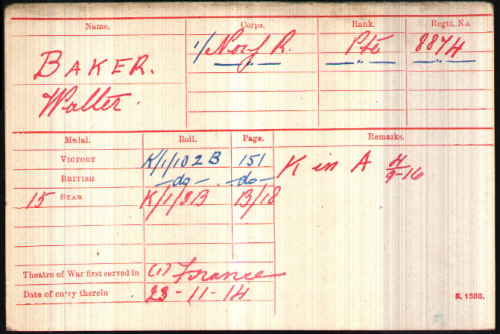 Name. Corps. Rank. Regtl. No.
BAKER. 1/Norf R. Pte 8874
Walter.
Medal. Roll. Page. Remarks.
VICTORY K/1/102B 151 K in A 4/9-16
BRITISH -do- -do-
15 STAR K/1/3B B/18
Theatre of War first served in (1) France
Date of entry therein 23-11-14
K. 1380.